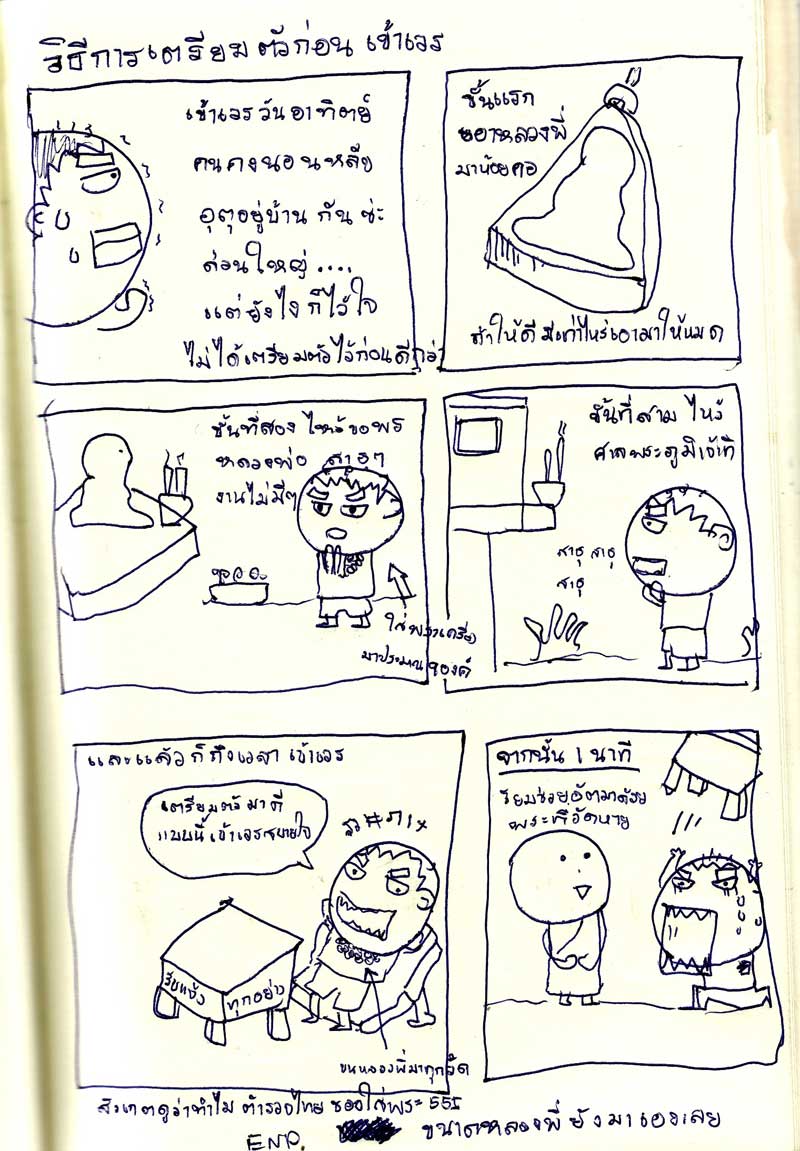 วิธีการเตรียมตัวก่อนเข้าเวร
เข้าเวรวันอาทิตย์
คนคงนอนหลับ
อุตุอยู่บ้านกันซะ
ส่วนใหญ่....
แต่ยังไงก็ไว้ใจ
ไม่ได้เตรียมตัวไว้ก่อนดีกว่า
ขั้นแรก
เอาหลวงพี่
มาห้อยคอ
ถ้าให้ดีมีเท่าไหร่เอามาให้หมด
ขั้นที่สอง ไหว้ขอพร
หลวงพ่อ สาธุๆ
งานไม่มีๆ
ใส่พระเครื่อง
มาประมาณ องค์
ขั้นที่สาม ไหว้
ศาลพระภูมิเจ้าที่
สาธุ สาธุ
สาธุ
และแล้วก็ถึงเวลาเข้าเวร
เตรียมตัวมาดี
แบบนี้เข้าเวรสบายใจ
รับแจ้ง
ทุกอย่าง
ขนหลวงพี่มาทุกวัด
จากนั้น 1 นาที
โยมช่วยอัตมาด้วย
พระที่วัดหาย
สังเกตดูว่าทำไม ตำรวจไทย ชอบใส่พระ 555
END.
ขนาดหลวงพี่ยังมาเองเลย